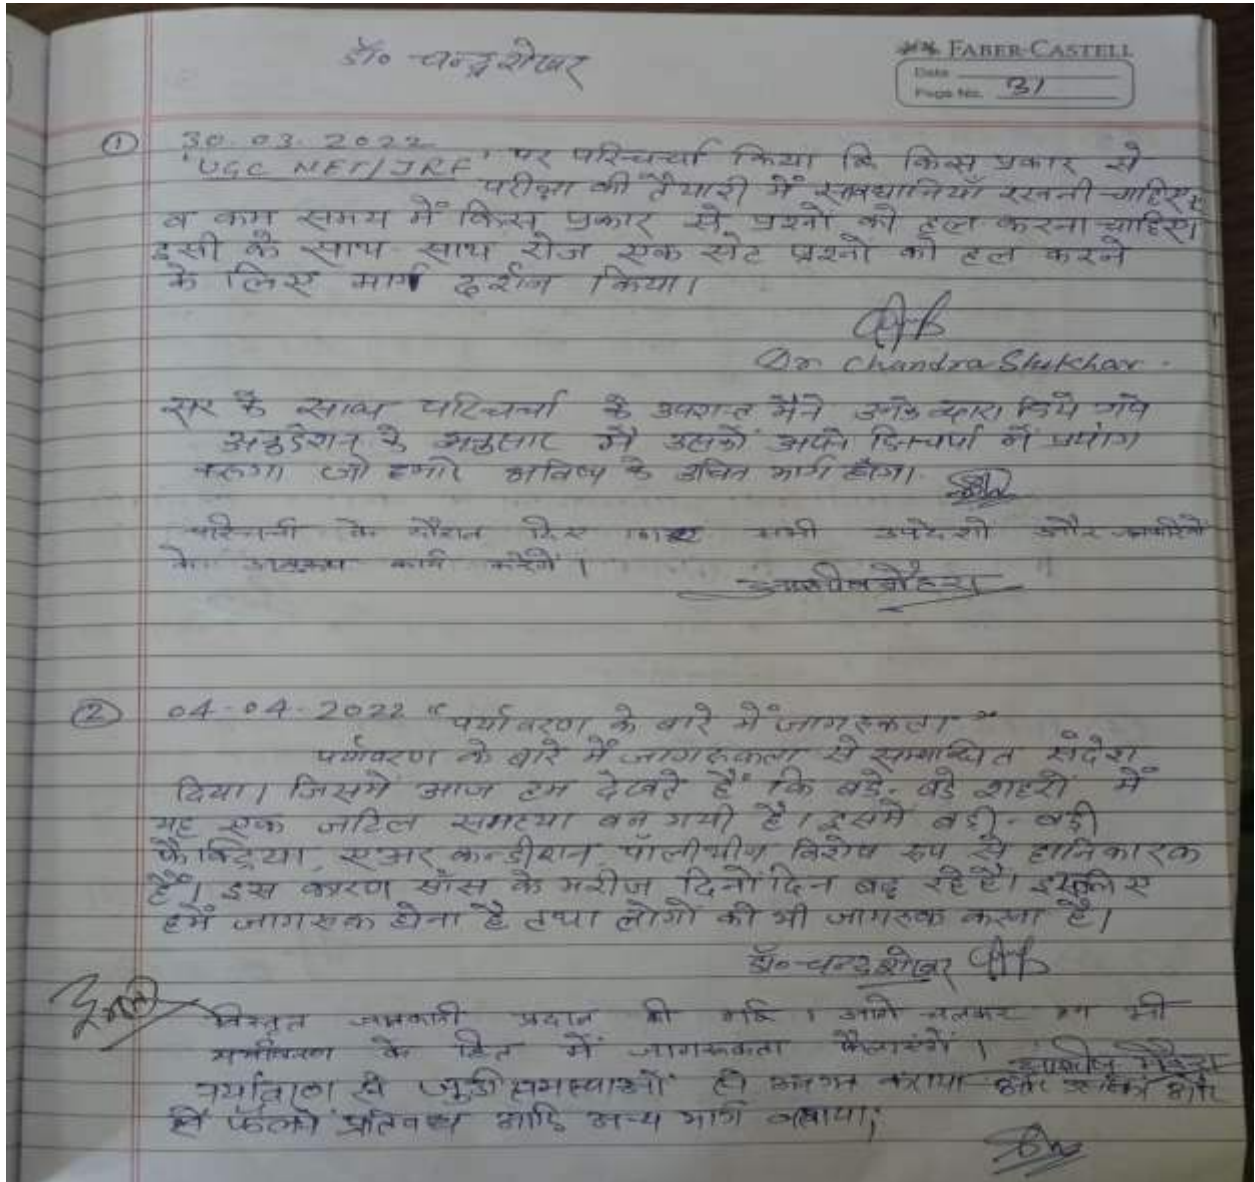 डॉ० चन्द्रशेखर
FABER-CASTELL
Date
Page No. 31
① 30.03.2022
'UGC NET/JRF' पर परिचर्चा किया कि किस प्रकार से
परीक्षा की तैयारी में सावधानियाँ रखनी चाहिए
व कम समय में किस प्रकार से प्रश्नो को हल करना चाहिए।
इसी के साथ साथ रोज एक सेट प्रश्नो को हल करने
के लिए मार्ग दर्शन किया।
Dr. Chandra Shekhar.
सर के साथ परिचर्चा के उपरान्त मैने उनके द्वारा दिये गये
के अनुसार मैं उसको अपने दिनचर्या में प्रयोग
करूगा जो हमारे भविष्य के उचित मार्ग होगा।
परिचर्चा के दौरान दिए गए सभी उपदेशो और
के अनुरूप कार्य करेंगे।
② 04-04-2022 "पर्यावरण के बारे में जागरूकता"
पर्यावरण के बारे में जागरूकता से सम्बन्धित संदेश
दिया। जिसमे आज हम देखते हैं कि बडे-बडे शहरों में
यह एक जटिल समस्या बन गयी है। इसमे बडी-बडी
फैक्ट्रिया, एअर कन्डीशन, पॉलीथीन विशेष रूप से हानिकारक
है। इस कारण साँस के मरीज दिनो दिन बढ़ रहे है। इसलिए
हमें जागरूक होना है तथा लोगो को भी जागरूक करना है।
डॉ० चन्द्रशेखर
विस्तृत जानकारी प्रदान की गई। आगे चलकर हम भी
पर्यावरण के हित में जागरूकता फैलाएंगें।
पर्यावरण से जुडी समस्याओं से अवगत कराया और
प्रतिबन्ध आदि अन्य मार्ग बताया।